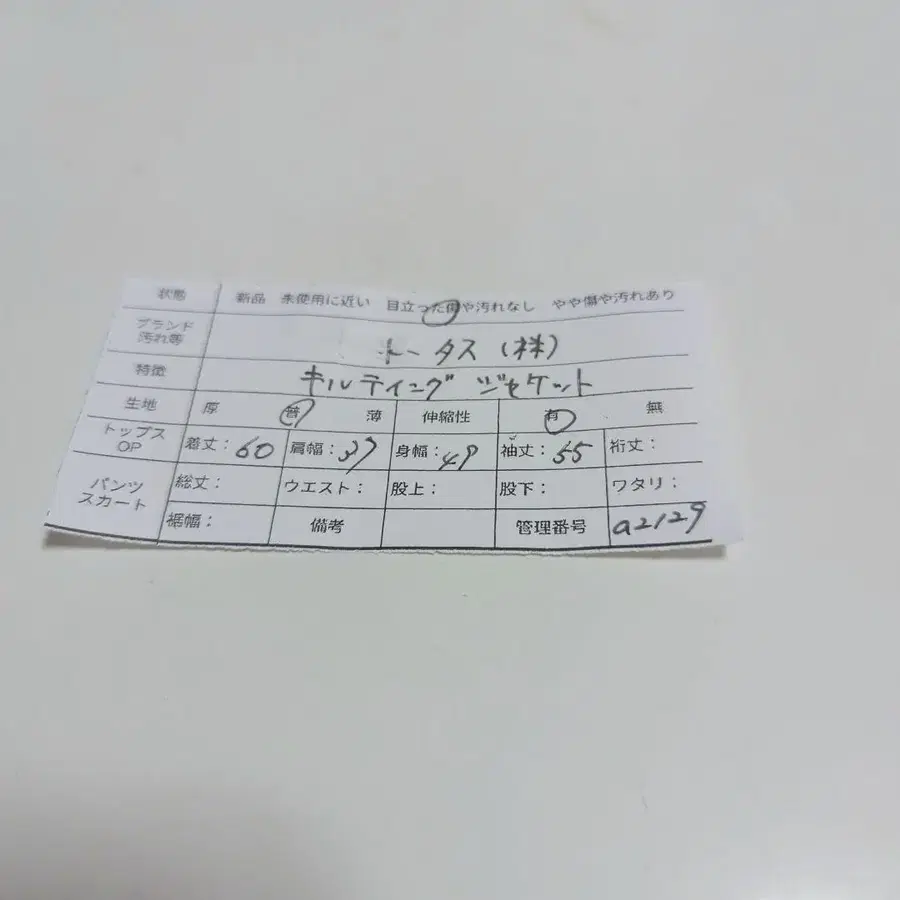 状態 新品 未使用に近い 目立った傷や汚れなし やや傷や汚れあり
ブランド
汚れ等 トータス(株)
特徴 キルティング ジャケット
生地 厚 普 薄 伸縮性 有 無
トップス
OP 着丈:60 肩幅:37 身幅:49 袖丈:55 裄丈:
パンツ
スカート 総丈: ウエスト: 股上: 股下: ワタリ:
裾幅: 備考 管理番号 a2129